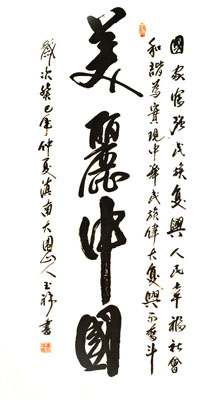 國家富強民族复興人民幸福社會
和諧為實現中華民族偉大复興而奮斗
美麗中國
歲次癸巳年仲夏滇南大圍山人玉祥書